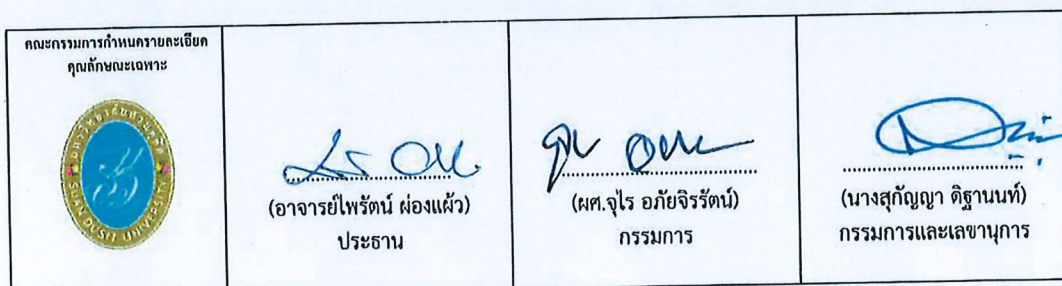 คณะกรรมการกำหนดรายละเอียด
คุณลักษณะเฉพาะ
มหาวิทยาลัยสวนดุสิต
SUAN DUSIT UNIVERSITY
(อาจารย์ไพรัตน์ ผ่องแผ้ว)
ประธาน
(ผศ.จุไร อภัยจิรรัตน์)
กรรมการ
(นางสุกัญญา ดิฐานนท์)
กรรมการและเลขานุการ